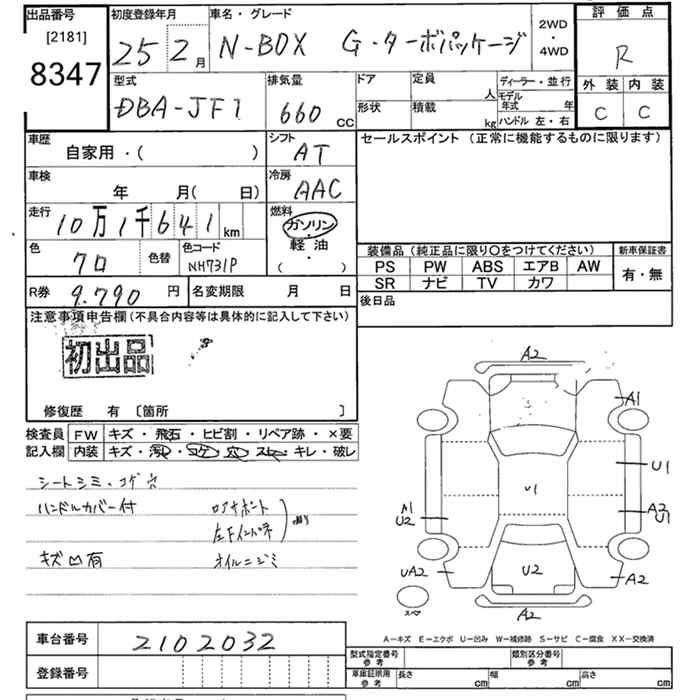 出品番号
[2181]
8347
初度登録年月
25 2月
車名・グレード
N-BOX G・ターボパッケージ
2WD
・
4WD
評価点
R
外装 内装
C C
型式
DBA-JF1
排気量
660 CC
ドア
定員
人
形状
積載
kg
ディーラー・並行
モデル年式 年
ハンドル 左・右
車歴
自家用・( )
シフト
AT
セールスポイント (正常に機能するものに限ります)
車検
年 月( 日)
冷房
AAC
走行
10万1千641 km
燃料
ガソリン
・
軽油
・
( )
色
クロ
色替
色コード
NH731P
装備品 (純正品に限り○をつけてください)
新車保証書
PS PW ABS エアB AW
SR ナビ TV カワ
有・無
R券 9.790 円
名変期限 月 日
後日品
注意事項申告欄 (不具合内容等は具体的に記入して下さい)
初出品
修復歴 有 〔箇所 〕
検査員 FW キズ・飛石・ヒビ割・リペア跡・×要
記入欄 内装 キズ・汚レ・コゲ・穴・スレ・キレ・破レ
シートシミ・コゲ穴
ハンドルカバー付
ロアサポート
左Fインナー
キズ凹有
オイルニジミ
A2
A1
U1
U1
A1
U2
A2
U1
UA2
U2
A2
スペア
A2
A-キズ E-エクボ U-凹み W-補修跡 S-サビ C-腐食 XX-交換済
車台番号 2102032
登録番号
型式指定番号
参考
類別区分番号
参考
車庫証明用
参考
長さ cm
幅 cm
高さ cm